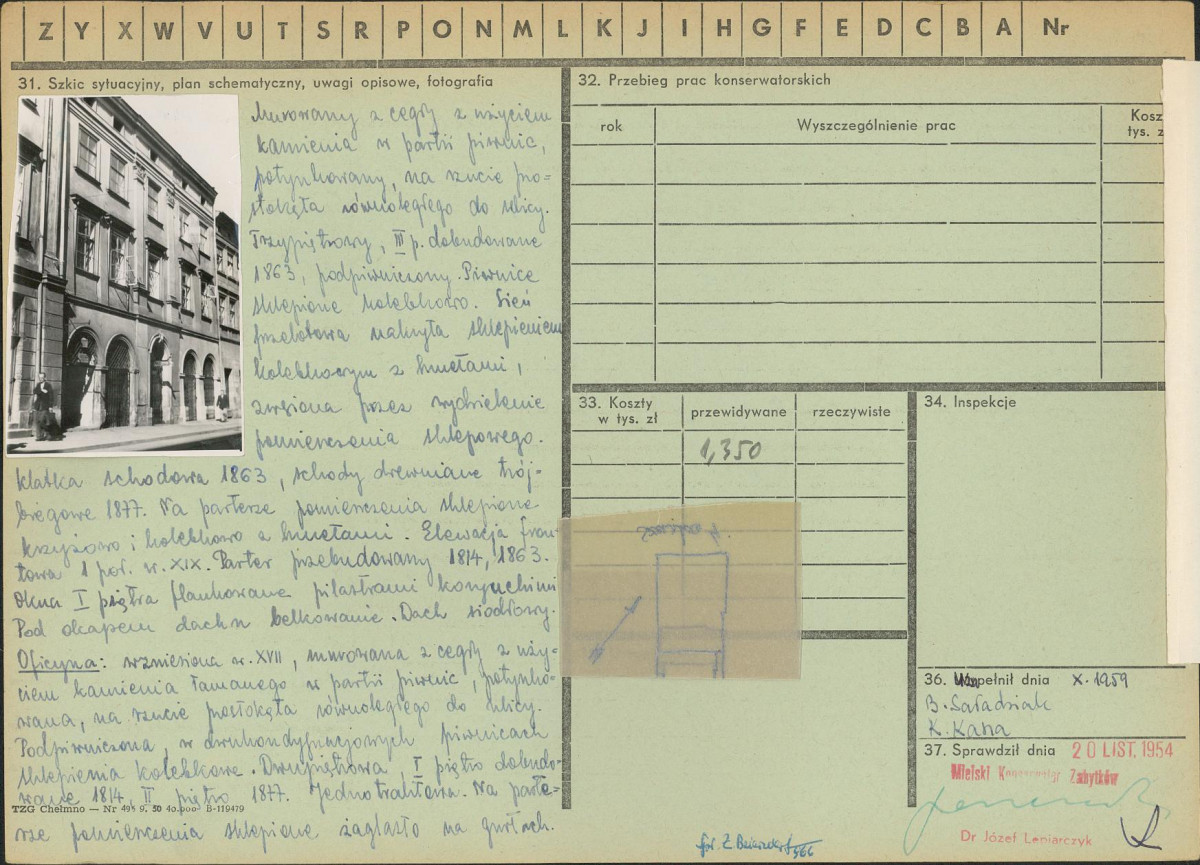 Z Y X W V U T S R P O N M L K J I H G F E D C B A Nr
31. Szkic sytuacyjny, plan schematyczny, uwagi opisowe, fotografia
Murowany z cegły z użyciem
kamienia w partii piwnic,
potynkowany, na rzucie pro=
stokąta równoległego do ulicy.
Trzypiętrowy, III p. dobudowane
1863, podpiwniczony. Piwnice
sklepione kolebkowo. Sień
przelotowa nakryta sklepieniem
kolebkowym z lunetami,
zwężona przez wydzielenie
pomieszczenia sklepowego.
Klatka schodowa 1863, schody drewniane trój-
biegowe 1877. Na parterze pomieszczenia sklepione
krzyżowo i kolebkowo z lunetami. Elewacja fron-
towa 1 poł. w. XIX. Parter przebudowany 1814, 1863.
Okna I piętra flankowane pilastrami
Pod okapem dachu belkowanie. Dach siodłowy.
Oficyna: wzniesiona w. XVII, murowana z cegły z uży-
ciem kamienia łamanego w partii piwnic, potynko-
wana, na rzucie prostokąta równoległego do ulicy.
Podpiwniczona, w dwukondygnacjowych piwnicach
sklepienia kolebkowe. Dwupiętrowa, I piętro dobudo-
wane 1814, II piętro 1877. Jednotraktowa. Na parte-
rze pomieszczenia sklepione żaglasto na gurtach.
TZG Chełmno — Nr 495 9. 50 40.000 B-119479
32. Przebieg prac konserwatorskich
rok Wyszczególnienie prac Kosz
tys. z
33. Koszty
w tys. zł
przewidywane rzeczywiste
1,350
34. Inspekcje
36. Wypełnił dnia X. 1959
B. Saładziak
K. Kana
37. Sprawdził dnia 20 LIST. 1954
Miejski Konserwator Zabytków
Dr Józef Lepiarczyk
fot. Z.